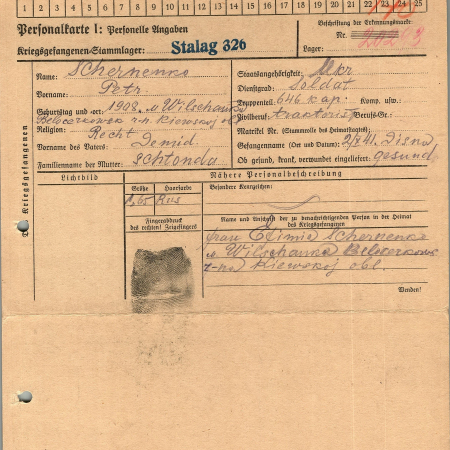 1 2 3 4 5 6 7 8 9 10 11 12 13 14 15 16 17 18 19 20 21 22 23 24 25
Personalkarte I: Personelle Angaben
Kriegsgefangenen-Stammlager: Stalag 326
Beschriftung der Erkennungsmarke
Nr.
Lager:
Name: Schernenko
Vorname: Petr
Geburtstag und -ort: 1908, M Wilschanka
Belozerkowsk r-n Kiewskoj obl
Religion: Recht
Vorname des Vaters: Demid
Familienname der Mutter: Schtonda
Staatsangehörigkeit: Ukr
Dienstgrad: Soldat
Truppenteil: 646 kap. Komp. usw.
Zivilberuf: traktorist Berufs-Gr.:
Matrikel Nr. (Stammrolle des Heimatstaates):
Gefangennahme (Ort und Datum): 2/7 41. Disna
Ob gesund, krank, verwundet eingeliefert: gesund
Des Kriegsgefangenen
Lichtbild
Nähere Personalbeschreibung
Größe Haarfarbe
1,65 Rus
Besondere Kennzeichen:
Fingerabdruck
des rechten! Zeigefingers
Name und Anschrift der zu benachrichtigenden Person in der Heimat
des Kriegsgefangenen
Frau Schernenko
M Wilschanka Belozerkowsk
r-na Kiewskoj obl.
Wenden!